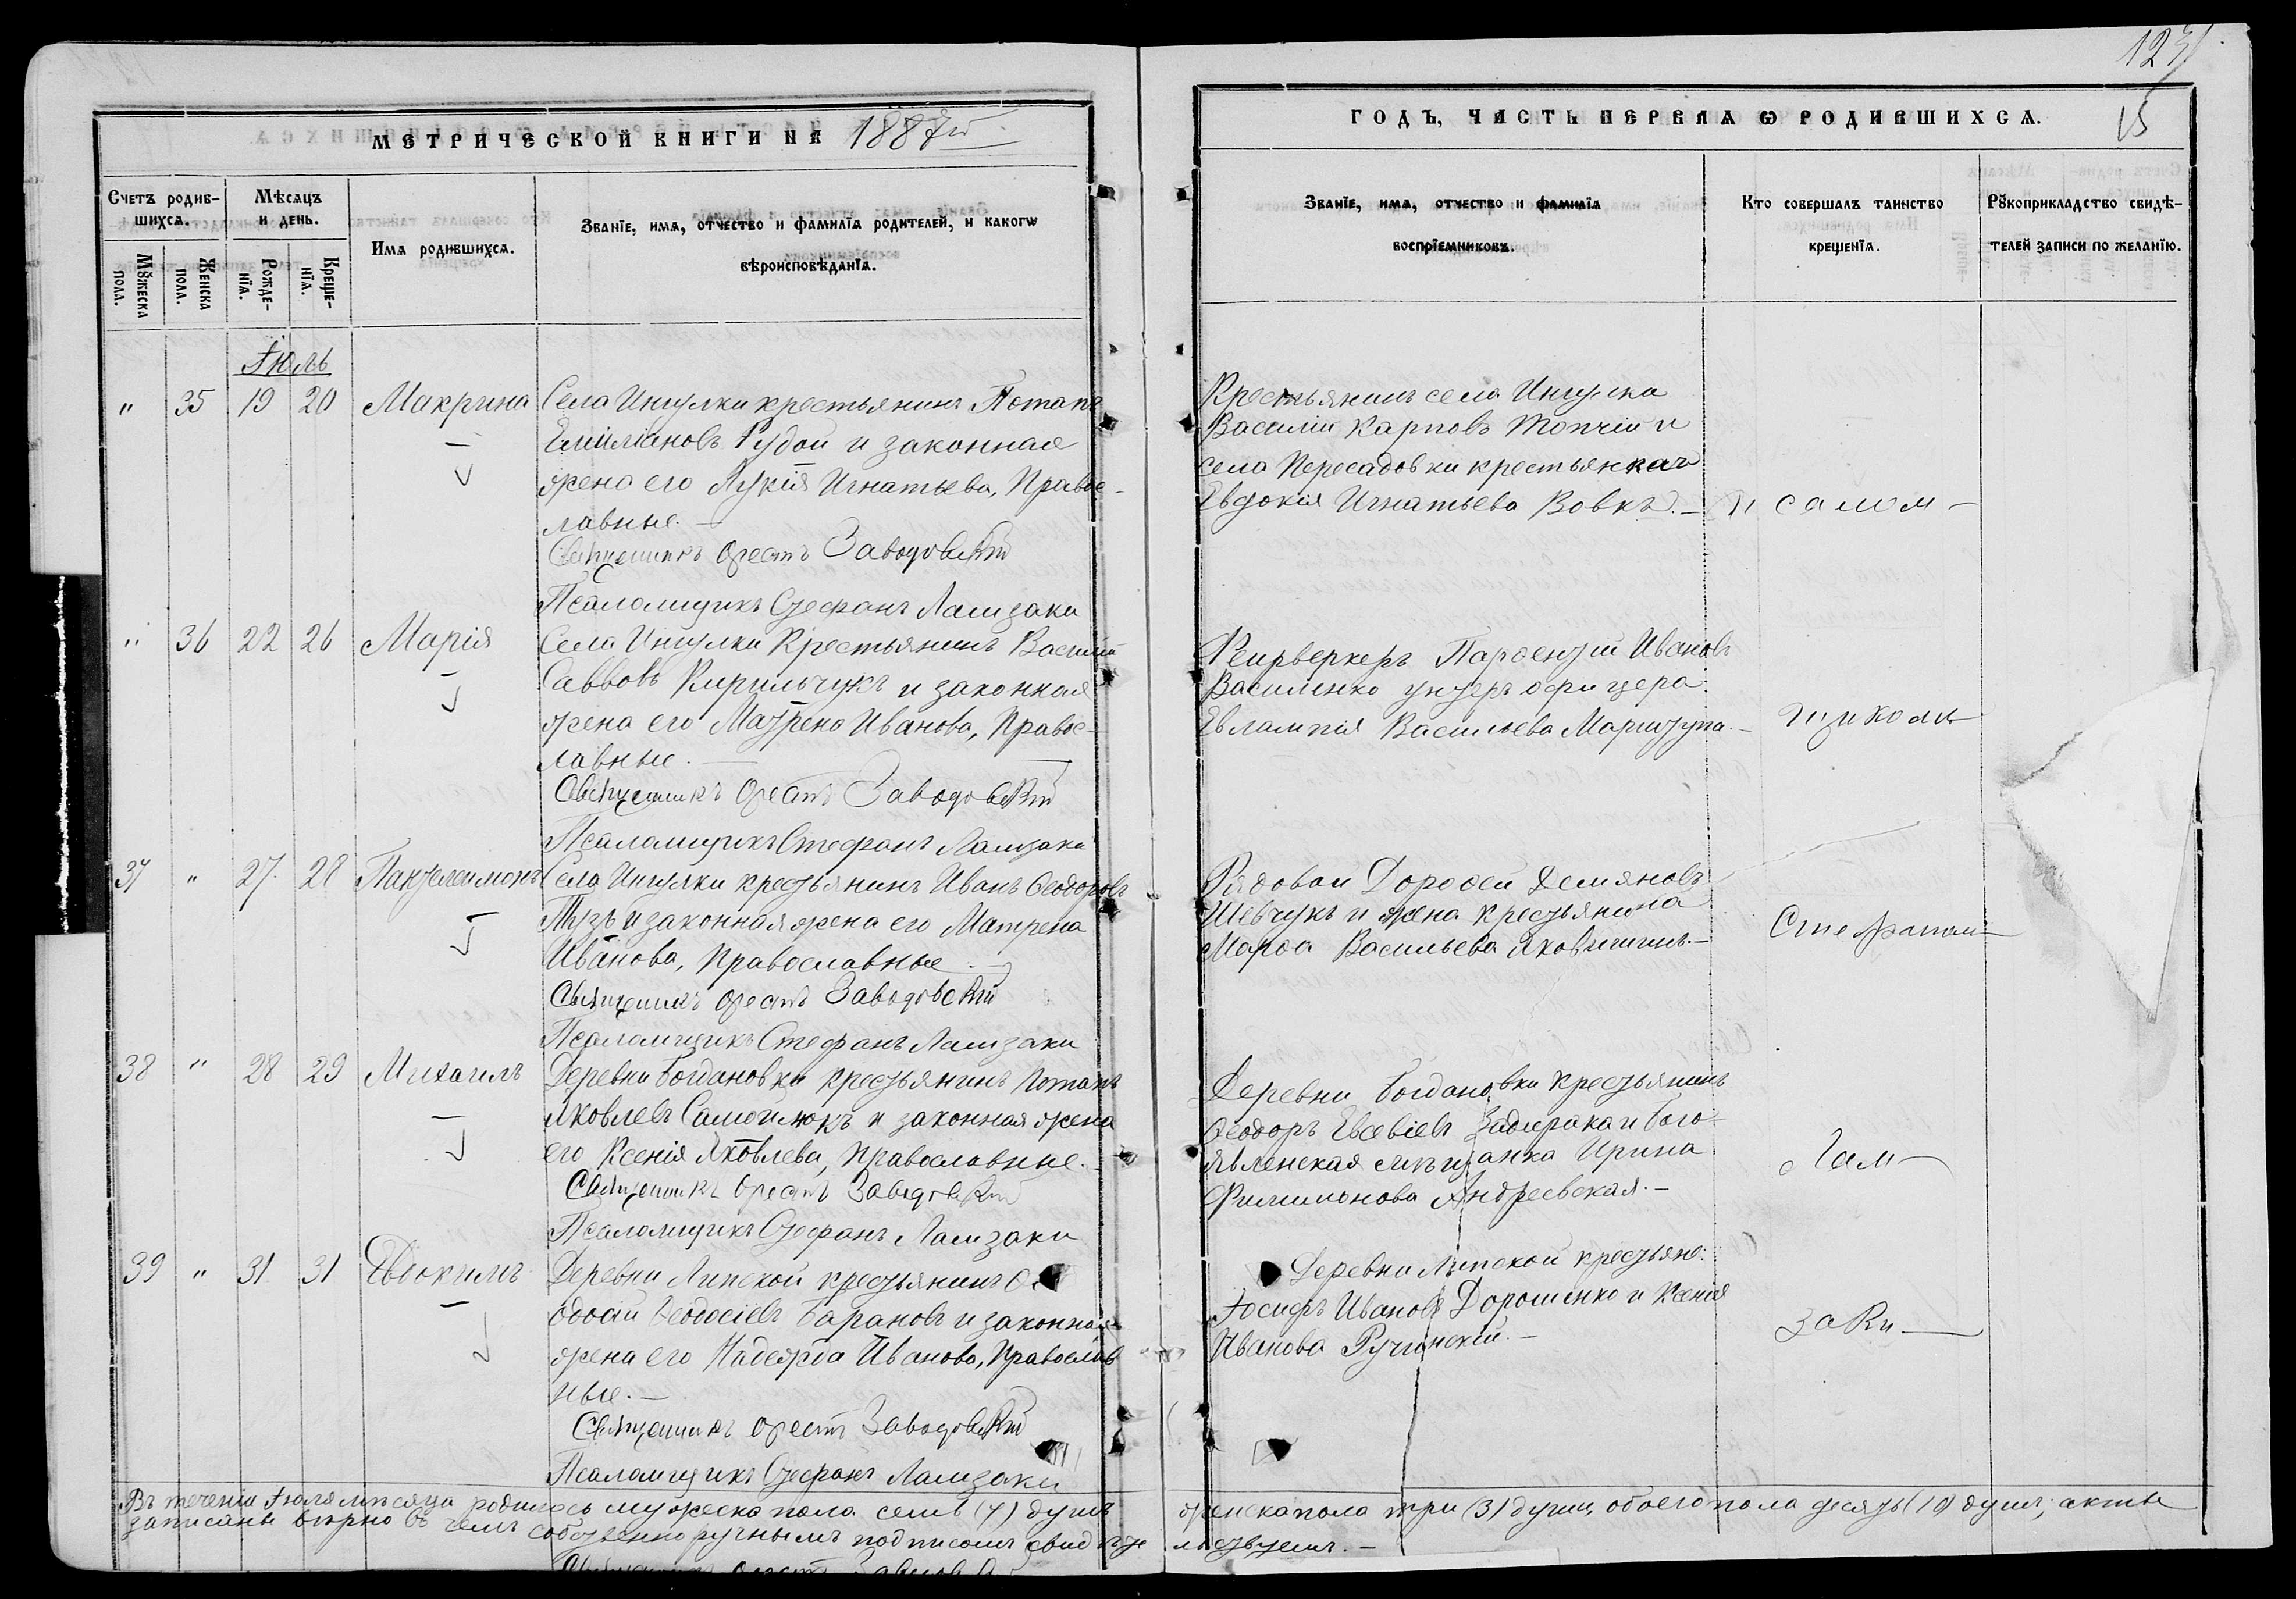 123
МЕТРИЧЕСКОЙ КНИГИ НА 1887й
ГОДЪ, ЧАСТЬ ПЕРВАЯ Ѡ РОДИВШИХСЯ.
15
Счетъ родив-
шихся.
Мѣсяцъ
и день.
Имя родившихся.
Званїе, имя, отчество и фамилїя родителей, и какогѡ
вѣроисповѣданїя.
Мꙋжеска
пола.
Женска
пола.
Рожде-
нїя.
Креще-
нїя.
Званїе, имя, отчество и фамилїя
воспрїемниковъ.
Кто совершалъ таинство
крещенїя.
Рꙋкоприкладство свидѣ-
телей записи по желанїю.
Іюль
" 35 19 20 Макрина Села Ингулки крестьянинъ Потапъ
Емиліановъ Рудой и законная
жена его Лукія Игнатьева, Правос-
лавные. —
Священникъ Орестъ Заводовскій
Псаломщикъ Стефанъ Ламзаки
Крестьянинъ села Ингулка
Василій Карповъ Топчій и
села Пересадовки крестьянка
Евдокія Игнатьева Вовкъ. —
П салом —
" 36 22 26 Марія Села Ингулки Крестьянинъ Василій
Саввовъ Кирильчукъ и законная
жена его Матрена Иванова, Правос-
лавные. —
Священникъ Орестъ Заводовскій
Псаломщикъ Стефанъ Ламзаки
Фейрверкеръ Парѳентій Ивановъ
Василенко унтеръ офицера
Евлампія Васильева Маршупа. —
щиком
37 " 27 28 Пантелеимонъ Села Ингулки крестьянинъ Иванъ Ѳеодоровъ
Музъ и законная жена его Матрена
Иванова, Православные. —
Священникъ Орестъ Заводовскій
Псаломщикъ Стефанъ Ламзаки
Рядовой Дороѳей Демяновъ
Шевчукъ и жена крестьянина
Марѳа Васильева
Стефаном —
38 " 28 29 Михаилъ Деревни Богдановки крестьянинъ Потапъ
Яковлевъ Самойлюкъ и законная жена
его Ксенія Яковлева, Православные. —
Священникъ Орестъ Заводовскій
Псаломщикъ Стефанъ Ламзаки
Деревни Богдановки крестьянинъ
Ѳеодоръ Евсевіевъ Задерака и Бого-
явленская мѣщанка Ирина
Филимонова Андреевская. —
Лам —
39 " 31 31 Евѳокимъ Деревни Липской крестьянинъ Ѳе
одосій Ѳеодосіевъ Барановъ и законная
жена его Надежда Иванова, Православ
ные. —
Священникъ Орестъ Заводовскій
Псаломщикъ Стефанъ Ламзаки
Деревни Липской крестьяне:
Іосифъ Ивановъ Дорошенко и Ксенія
Иванова Ручинскій. —
заки —
Въ теченіи Іюля мѣсяца родилось мужеска пола семь (7) душъ женска пола три (3) души, обоего пола десять (10) душъ; акты
записаны вѣрно въ чемъ собственноручнымъ подписомъ свидѣте льствуемъ. —
Священникъ Орестъ